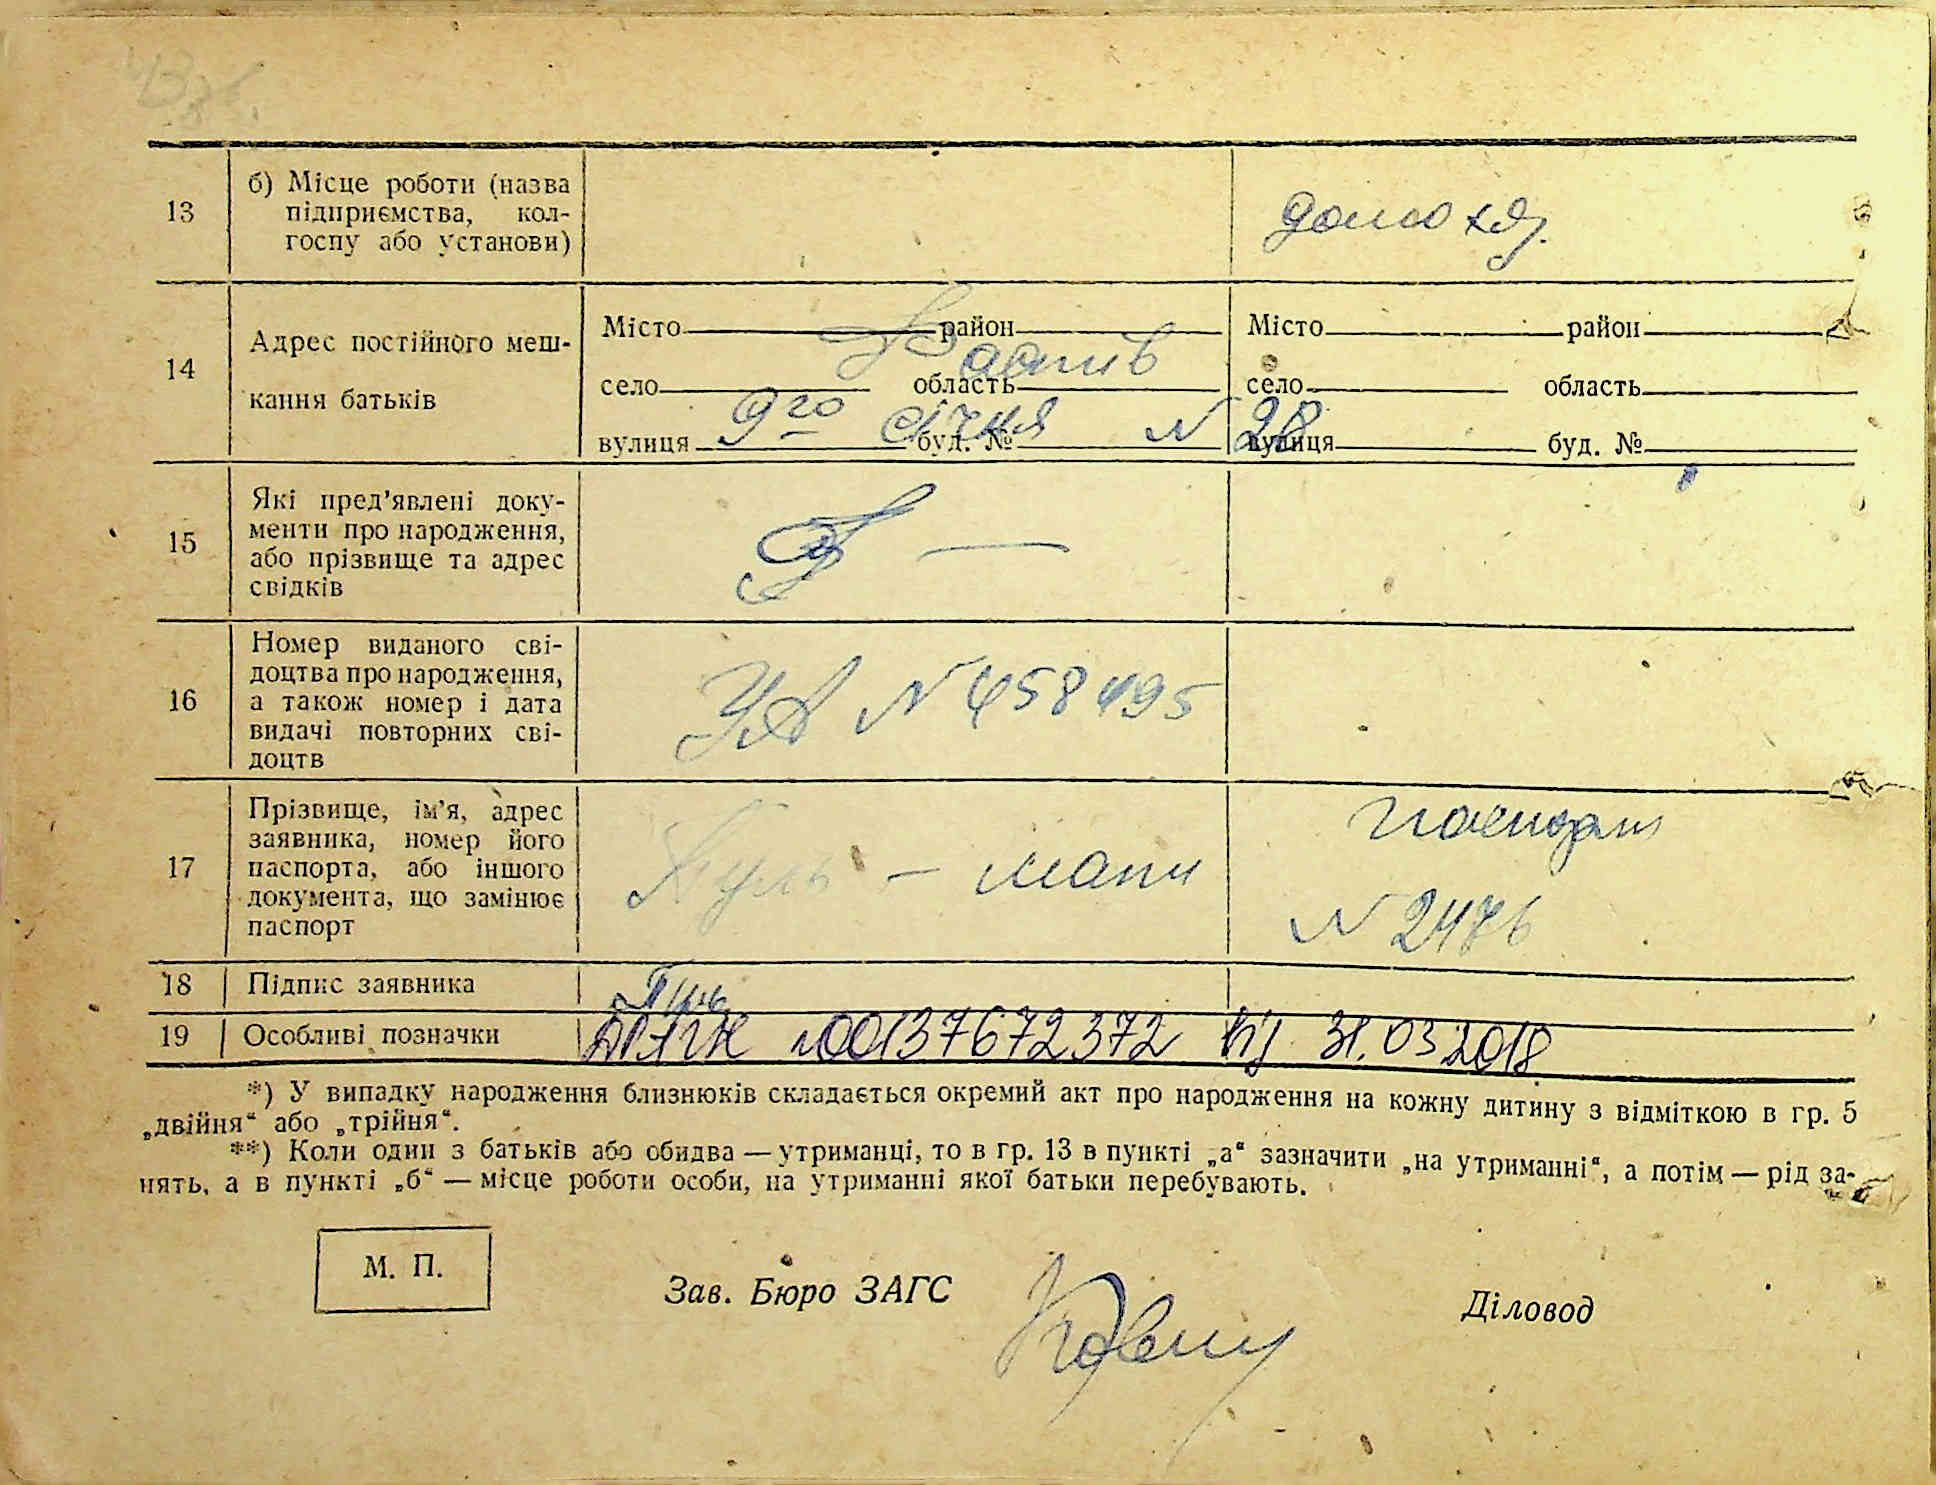 13
б) Місце роботи (назва
підприємства, кол-
госпу або установи)
домо хаз.
14
Адрес постійного меш-
кання батьків
Місто район
Фастів
село область
9го січня N 28
вулиця буд. №
Місто район
село область
вулиця буд. №
15
Які пред’явлені доку-
менти про народження,
або прізвище та адрес
свідків
—
16
Номер виданого сві-
доцтва про народження,
а також номер і дата
видачі повторних сві-
доцтв
УА N 458495
17
Прізвище, ім’я, адрес
заявника, номер його
паспорта, або іншого
документа, що замінює
паспорт
— мати
паспорт
N 2476
18
Підпис заявника
19
Особливі позначки
ДРАГН №00137672372 від 31.03.2018
*) У випадку народження близнюків складається окремий акт про народження на кожну дитину з відміткою в гр. 5
„двійня“ або „трійня“.
**) Коли один з батьків або обидва — утриманці, то в гр. 13 в пункті „а“ зазначити „на утриманні“, а потім — рід за-
нять, а в пункті „б“ — місце роботи особи, на утриманні якої батьки перебувають.
М. П.
Зав. Бюро ЗАГС
Діловод